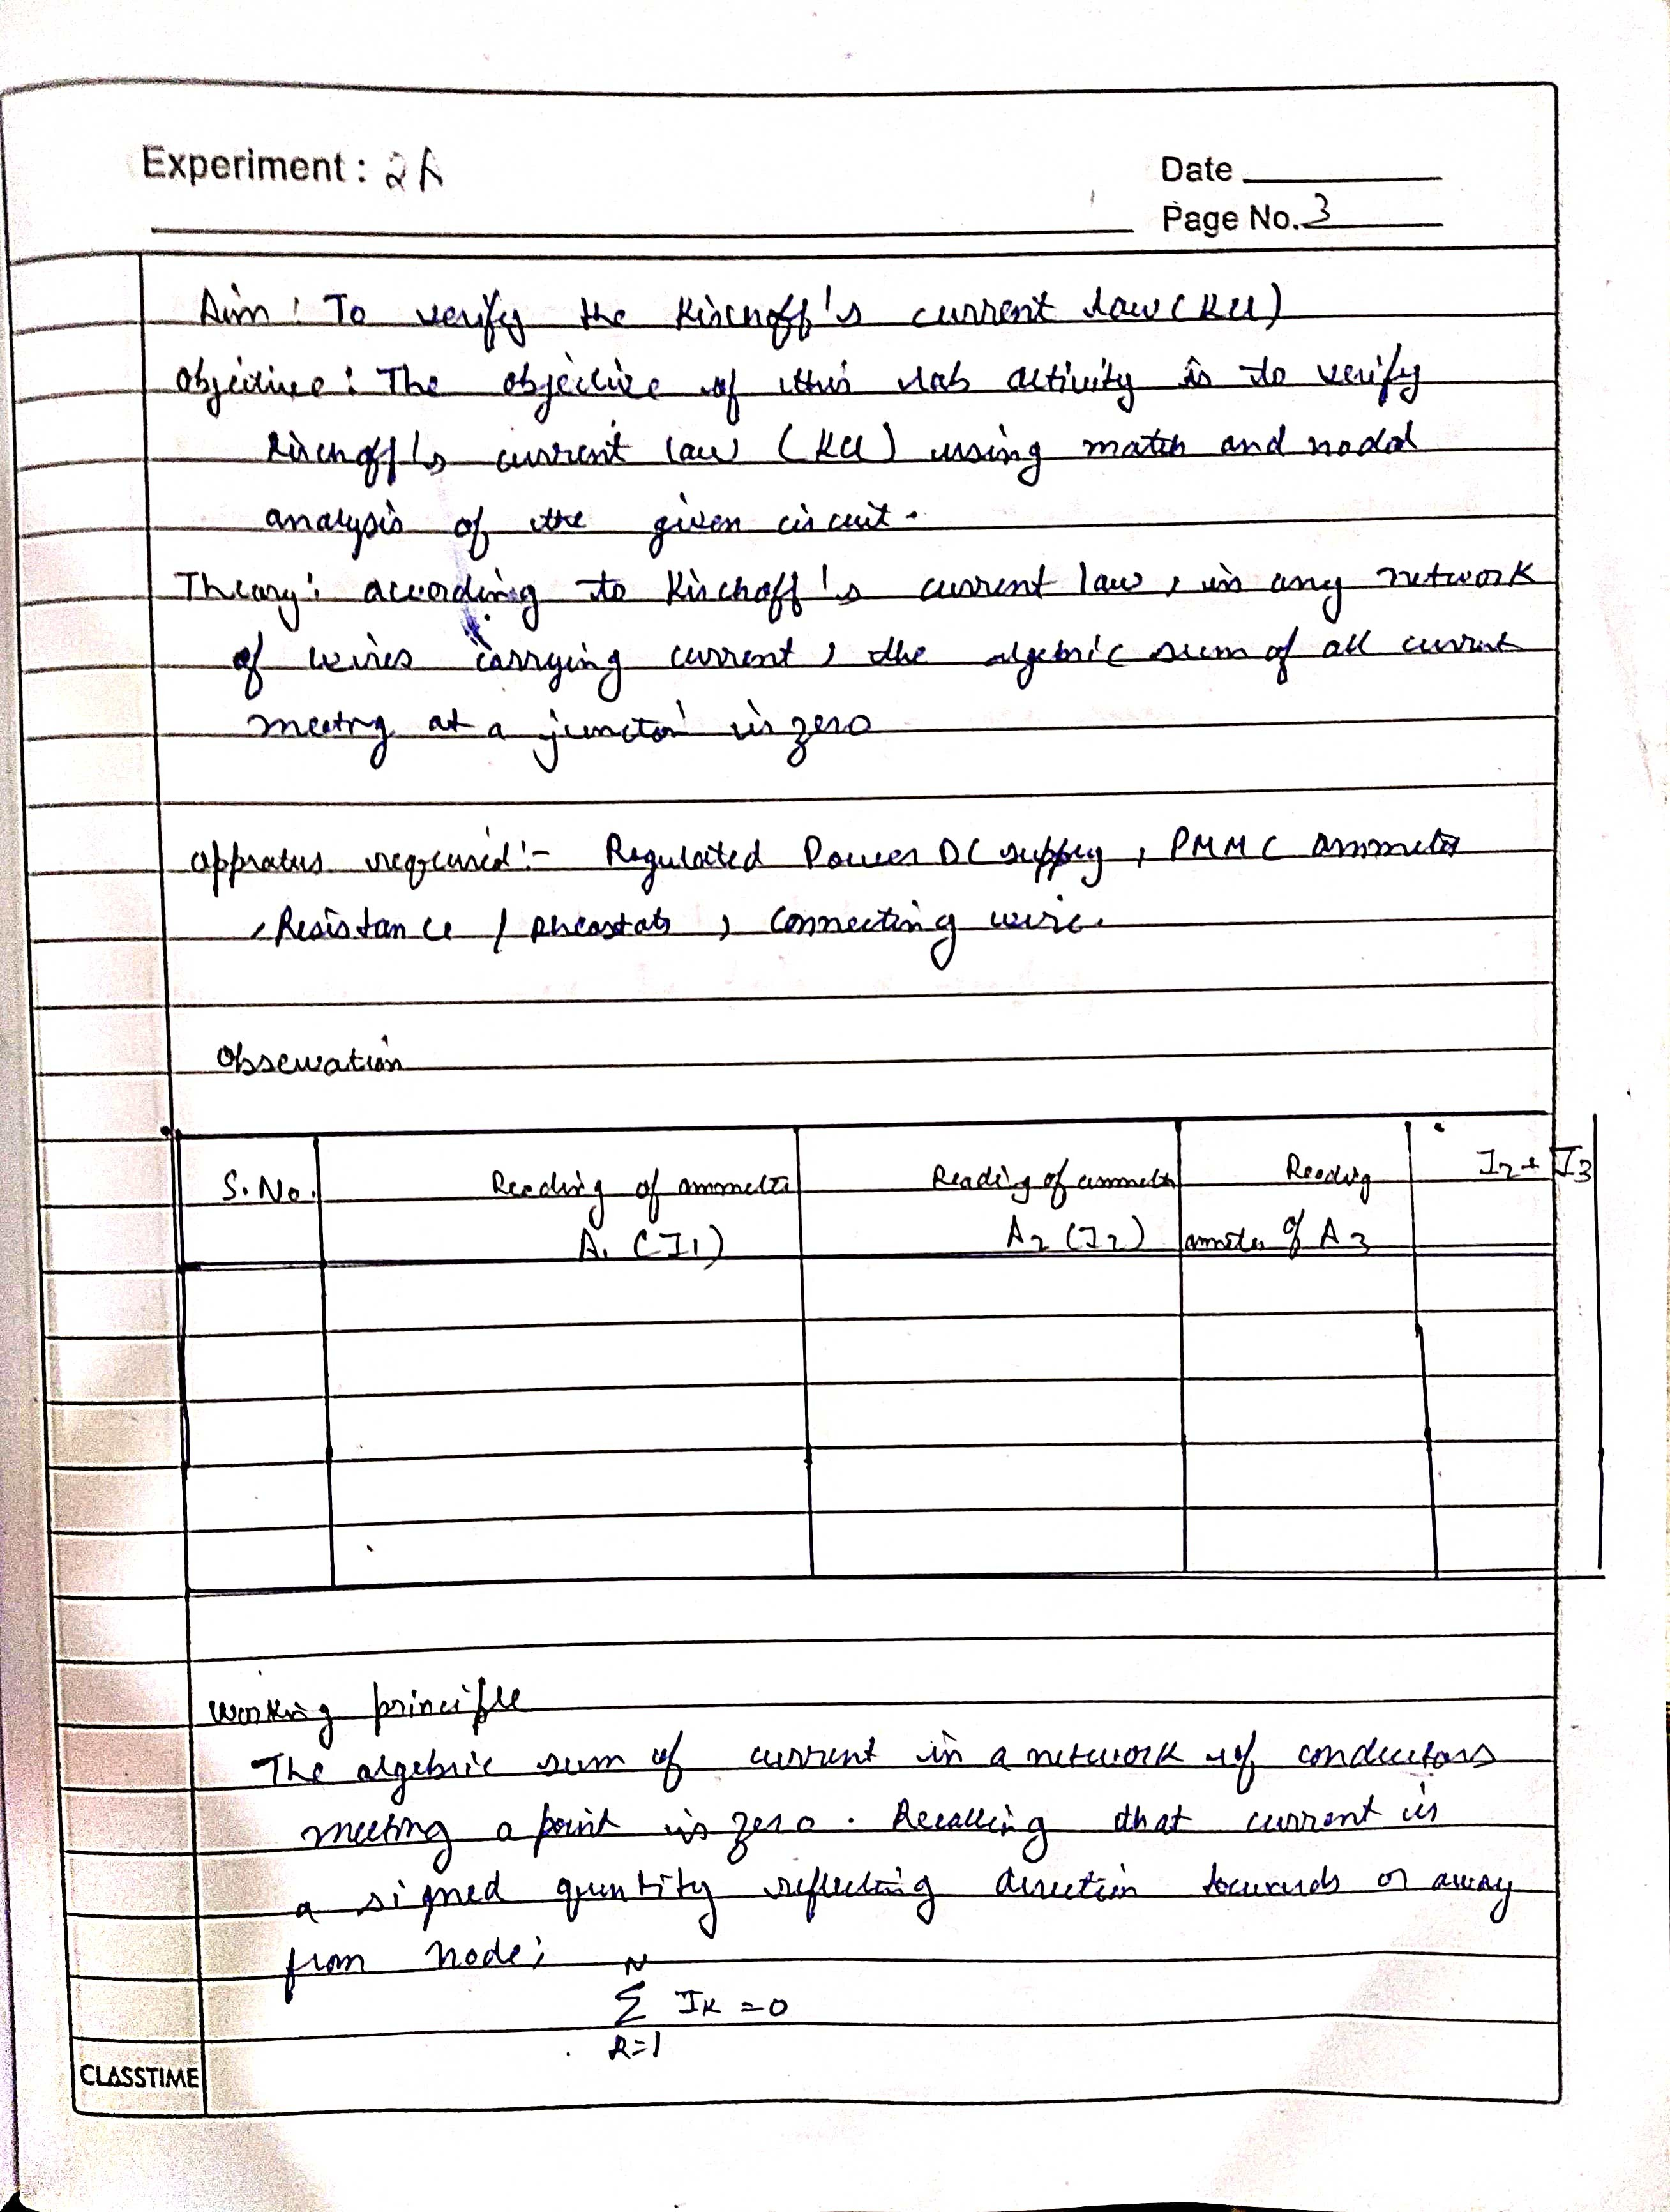 Experiment : 2A
Date
Page No. 3
Aim : To verify the Kirchoff's current law (KCL)
Objective : The objective of this lab activity is to verify
Kirchoff's current law (KCL) using match and nodal
analysis of the given circuit.
Theory : according to Kirchoff's current law, in any network
of wires carrying current, the algebric sum of all current
meetng at a juncton is zero
appratus required :- Regulated Power DC supply, PMMC ammeter
, Resistance / rheostats, connecting wire.
Observation
S. No. Reading of ammeter Reading of ammeter Reading I2 + I3
A1 (I1) A2 (I2) ammeter of A3
working principle
The algebric sum of current in a network of conductors
meeting a point is zero. Recalling that current is
a signed quntity reflecting direction towards or away
from node;
N
Σ IK = 0
K=1
CLASSTIME